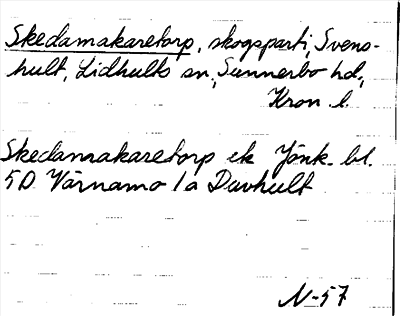 Skedamakaretorp, skogsparti, Svens-
hult, Lidhults sn, Sunnerbo hd,
Kron. l.
Skedamakaretorp ek Jönk. bl.
5D Värnamo 1a Duvhult
N-57